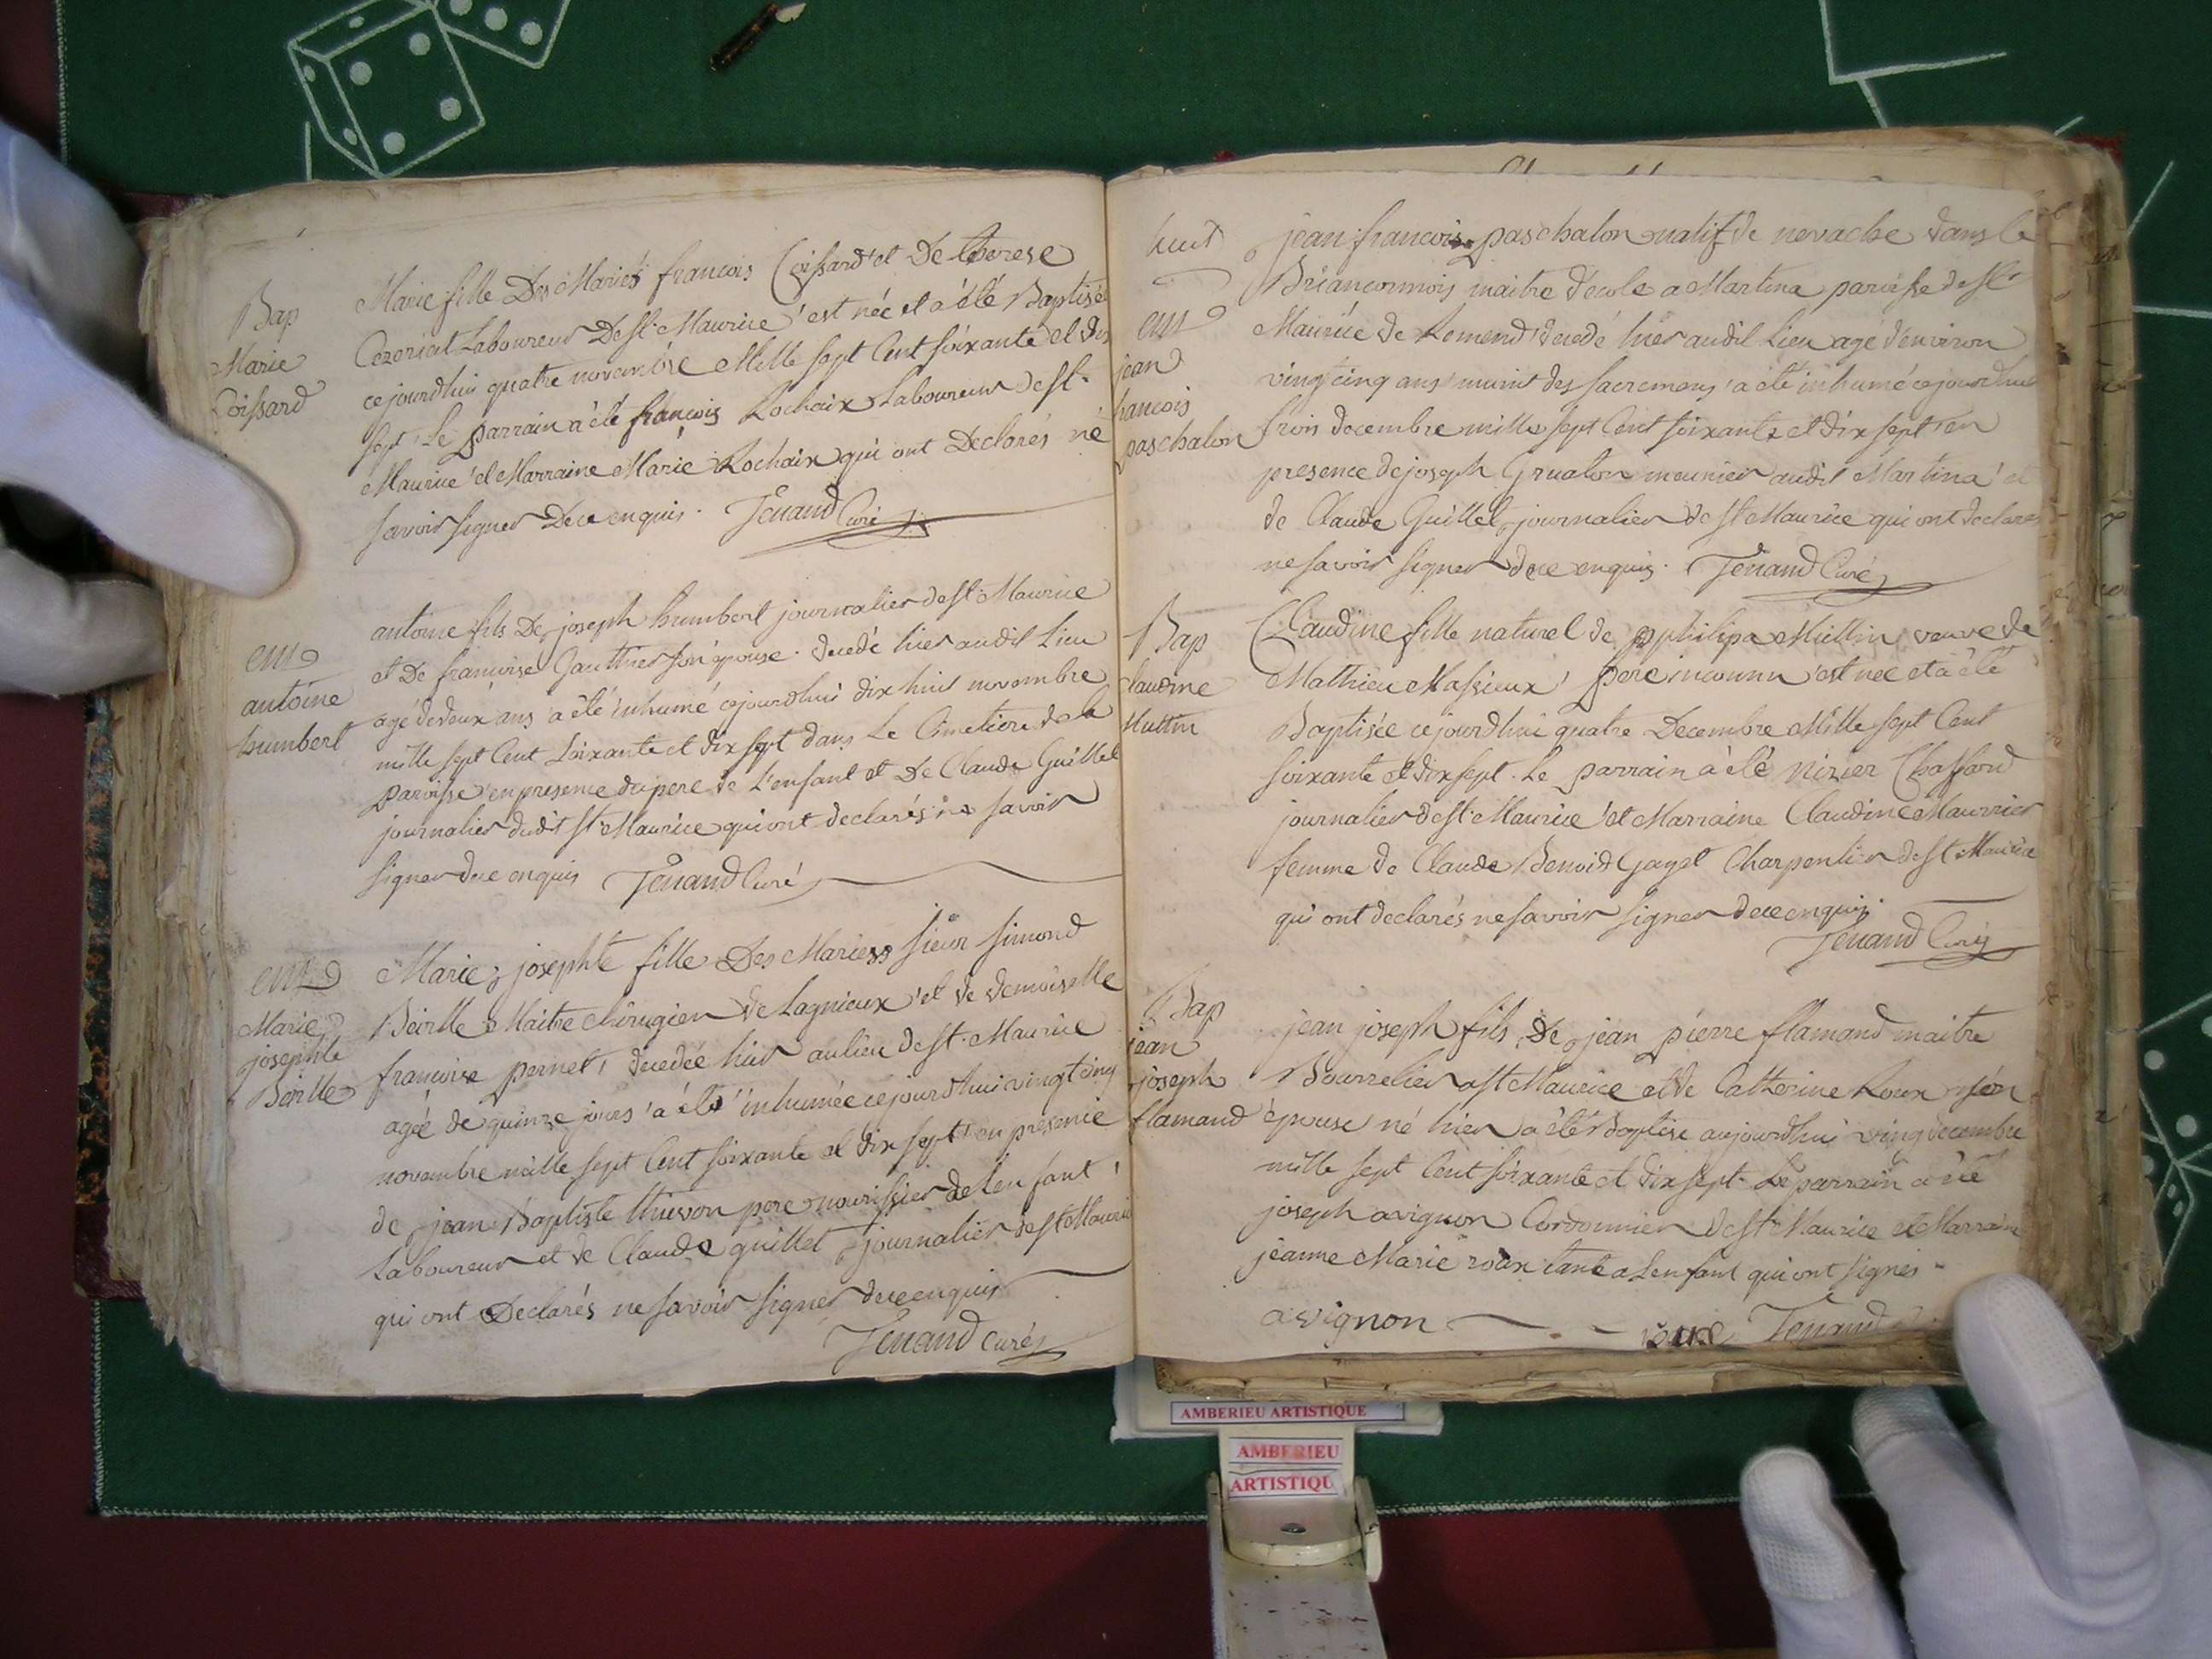 Bap
Marie
Coissard
Marie fille Des Mariés francois Coissard et De therese
Cezeriat Laboureur De st. Maurice est née et a été Baptisée
ce jourdhui quatre novembre Mille sept Cent soixante et dix
sept. Le parrain a été francois Rochaix Laboureur de st.
Maurice et Marraine Marie Rochaix qui ont Declarés ne
savoir signer De ce enquis. Tenand Curé
ent
antoine
humbert
antoine fils De joseph humbert journalier de st. Maurice
et De francoise Gauthier son épouse. decedé hier audit Lieu
agé de deux ans a été inhumé cejourdhui dix huit novembre
mille sept Cent soixante et dix sept dans Le Cimetiere de la
paroisse en presence du pere de L'enfant et De Claude Guillet
journalier dudit st. Maurice qui ont declarés ne savoir
signer de ce enquis Tenand Curé
ent
Marie
josephte
Marie josephte fille Des Mariess sieur simond
Maitre chirugien de Lagnieux et de demoiselle
francoise pernet, decedée hier au lieu de st. Maurice
agée de quinze jours a été inhumée cejourdhui vingt cinq
novembre mille sept Cent soixante et dix sept en presence
de jean Baptiste pere nourissier de Len fant
Laboureur et de Claude guillet journalier de st Maurice
qui ont Declarés ne savoir signer de ce enquis
Tenand curé
huit
ent
jean
francois
paschalon
jean francois paschalon natif de nevache dans le
Brianconnois maitre d'ecole a Martina paroisse de st
Maurice de Remend decedé hier audit Lieu agé d'environ
vingt cinq ans munit des sacremens a été inhumé cejourdhui
trois decembre mille sept Cent soixante et dix sept en
presence de joseph Gruaton meunier audit Martina et
de Claude Guillet journalier de st Maurice qui ont declarés
ne savoir signer de ce enquis. Tenand Curé
Bap
claudine
Claudine fille naturel de philipa veuve de
Mathieu Massieux pere inconnu est née et a été
Baptisée ce jourdhui quatre Decembre Mille sept Cent
soixante et dix sept. Le parrain a été Nizier Chaffard
journalier de st. Maurice et Marraine Claudine Maurrier
femme de Claude Benoid Gayet Charpentier de st Maurice
qui ont declarés ne savoir signer de ce enquis.
Tenand Curé
Bap
jean
joseph
flamand
jean joseph fils De jean pierre flamand maitre
Bourrelier a st Maurice et de Catherine Roux son
épouse né hier a été Baptise aujourdhui vingt decembre
mille sept Cent soixante et dix sept. Le parrain a été
joseph avignon Cordonnier de st Maurice et Marraine
jeanne Marie roux tante a Lenfant qui ont signés
avignon Tenand
AMBERIEU ARTISTIQUE
AMBERIEU
ARTISTIQU